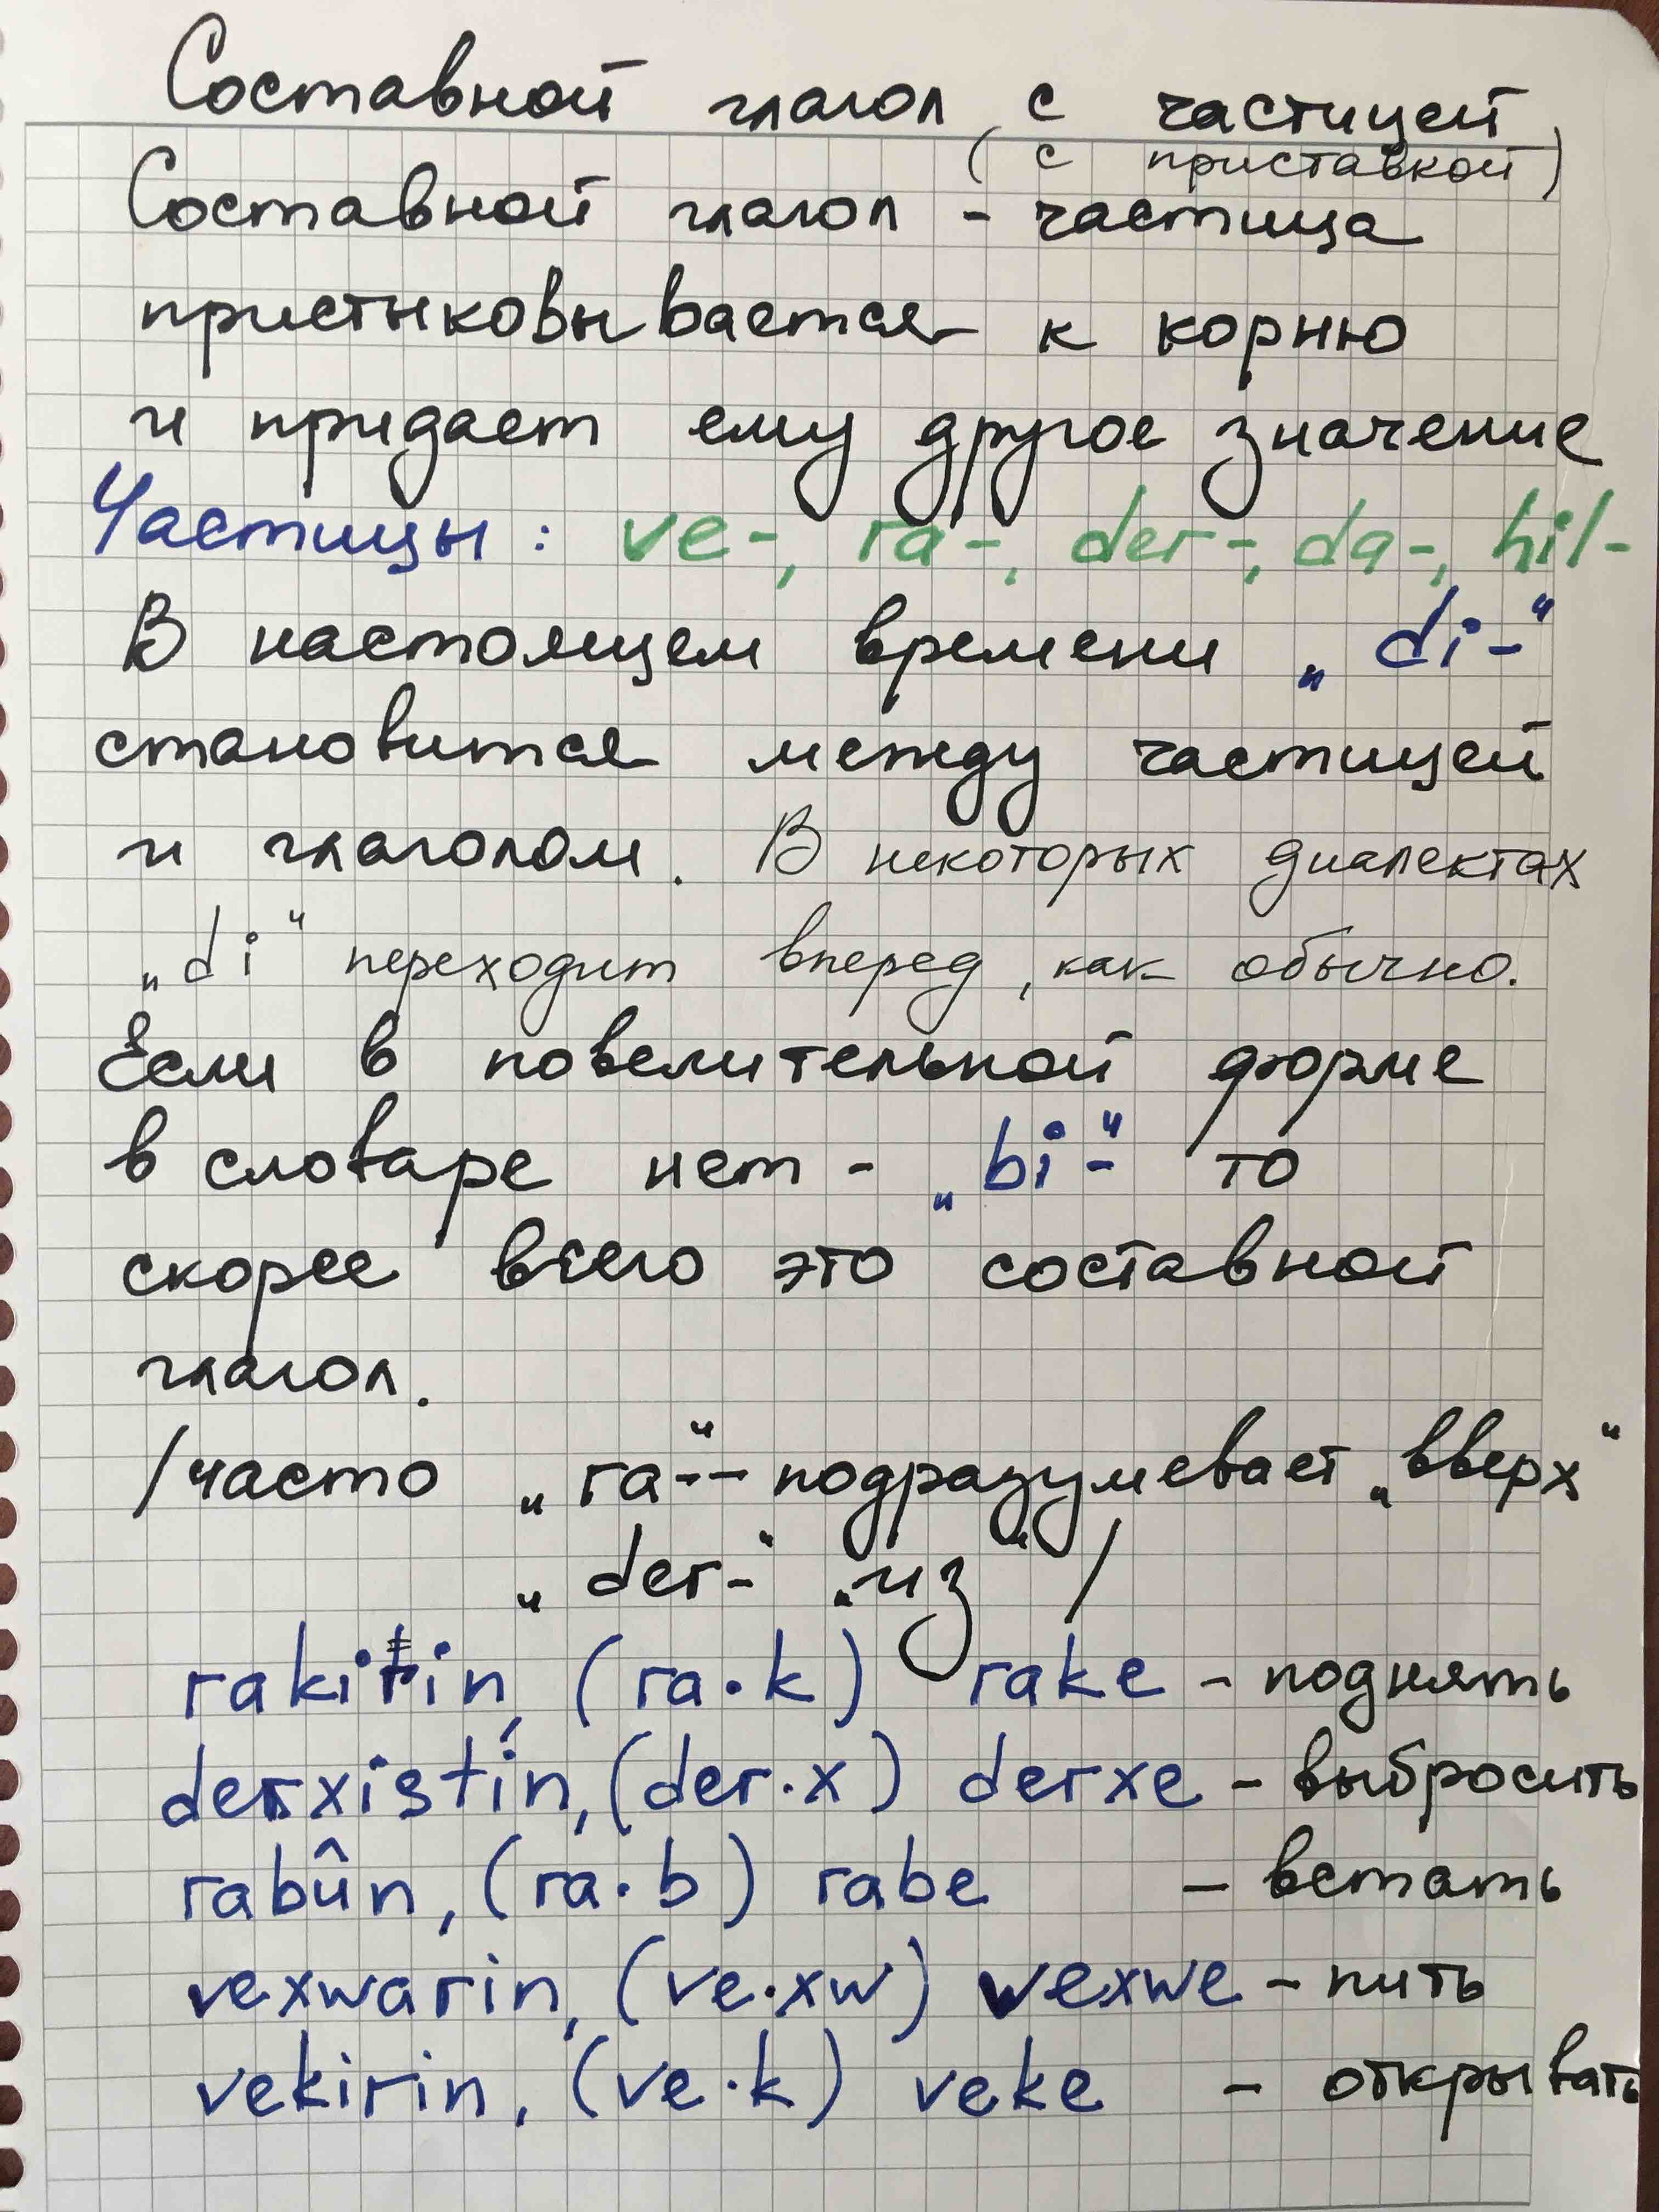 Составной глагол с частицей
(с приставкой)
Составной глагол - частица
пристыковывается к корню
и придает ему другое значение
Частицы: ve-, ra-, der-, da-, hil-
В настоящем времени „di-“
становится между частицей
и глаголом. В некоторых диалектах
„di“ переходит вперед, как обычно.
Если в повелительной форме
в словаре нет - „bi-“ то
скорее всего это составной
глагол.
/часто „ra-“- подразумевает „вверх“
„der-“ „из“ /
rakirin, (ra·k) rake - поднять
derxistin, (der·x) derxe - выбросить
rabûn, (ra·b) rabe - встать
vexwarin, (ve·xw) vexwe - пить
vekirin, (ve·k) veke - открывать